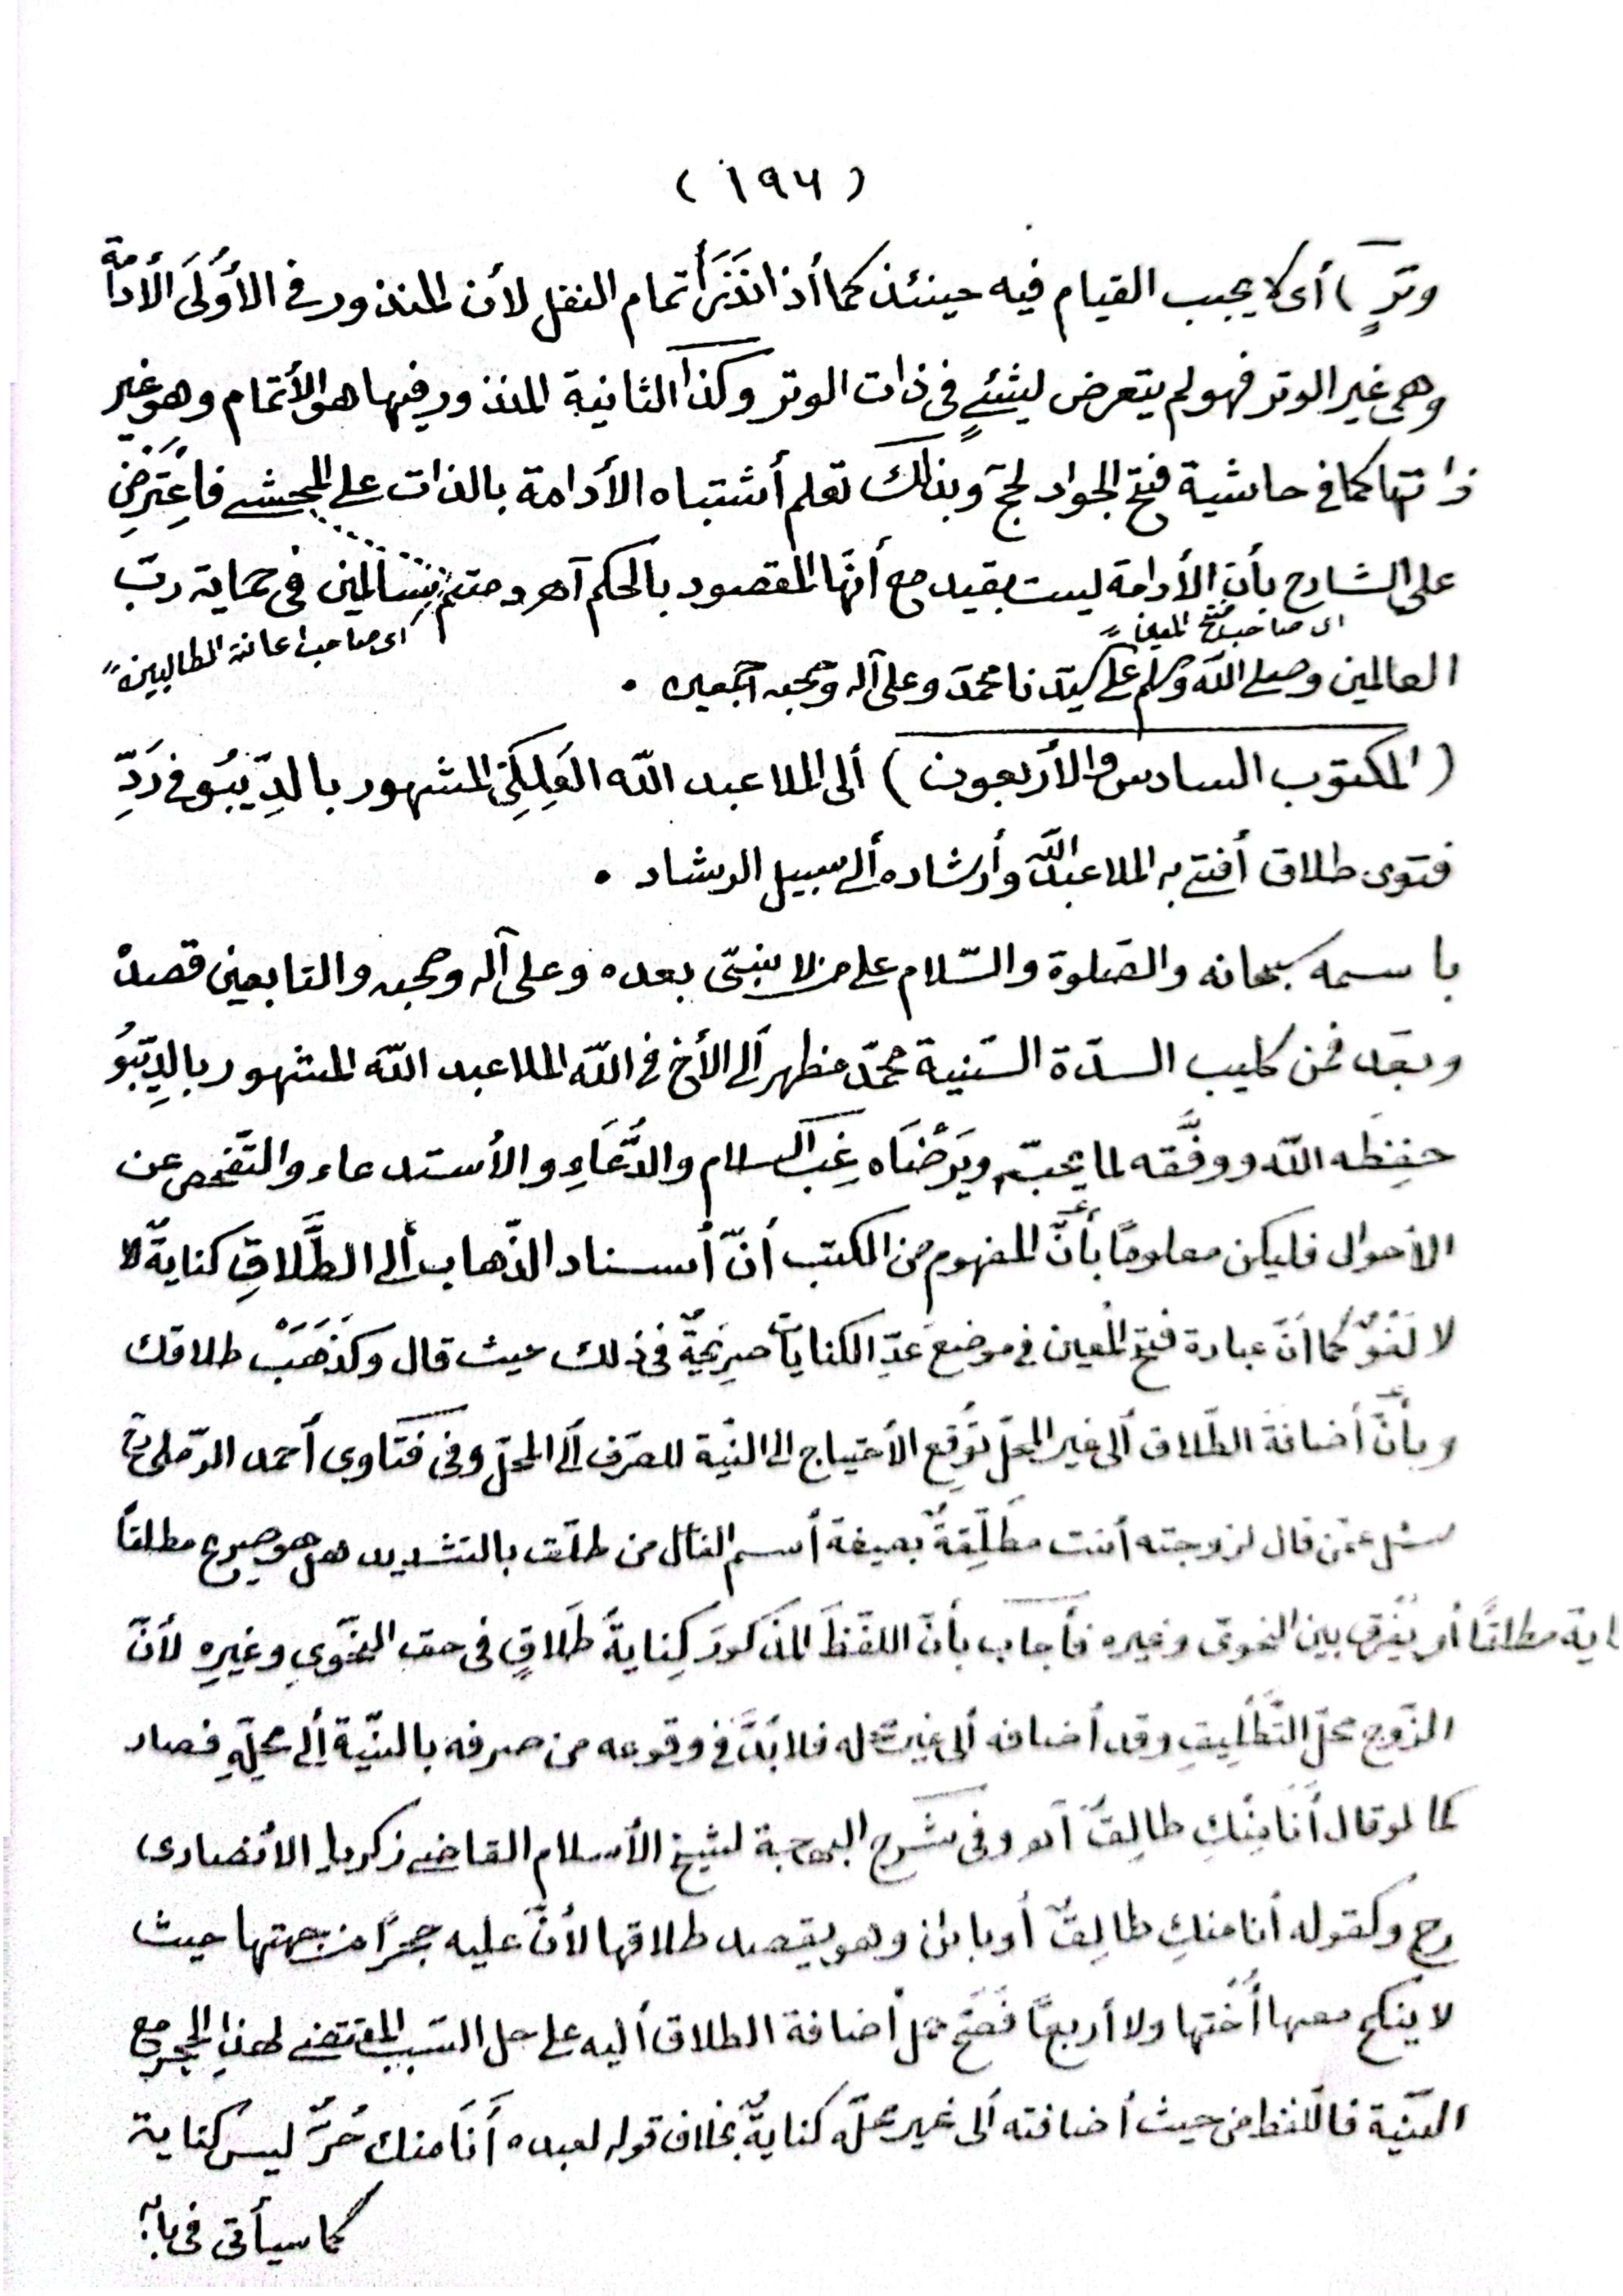 ( ١٩٦ )
وترٍ ) أى لا يجب القيام فيه حينئذ كما أذا نَذَرَ أتمام النفل لأن المنذور فى الأُولَى الأدامة
وهى غير الوتر فهو لم يتعرض لشئٍ فى ذات الوتر وكذا الثانية المنذور فيها هو الأتمام وهو غير
ذاتها كما فى حاشية فتح الجواد لحج وبذلك تعلم أشتباه الأدامة بالذات على المحشى فاعتَرَضَ
على الشارح بأن الأدامة ليست بقيد مع أنها المقصود بالحكم آهـ ودمتم سالمين فى حماية ربّ
اى صاحب فتح المعين
اى صاحب اعانة الطالبين
العالمين وصلى الله وسلم على سيّدنا محمّد وعلى آله وصحبه اجمعين .
( المكتوب السادس والأربعون ) ألى الملا عبد اللّه المشهور بالدِّيبُو فى رَدِّ
فتوى طلاق أفتى به الملا عبد اللّه وأرشاده ألى سبيل الرشاد .
باسمه سبحانه والصّلوة والسّلام على من لا نبىّ بعده وعلى آله وصحبه والتابعين قصده
وبعد فمن كليب السدّة السّنية محمّد مظهر ألى الأخ فى اللّه الملا عبد اللّه المشهور بالدِيبُو
حفِظَه اللّه ووفَّقه لما يحبّه ويَرْضَاه غِبّ السلام والدُّعَاءِ والأستدعاء والتّفحص عن
الأحوال فليكن معلومًا بأنَّ المفهوم من الكتب أنّ أسناد الذّهاب ألى الطَّلَاقِ كنايةٌ لا
لا لَغْوٌ كما أنّ عبارة فتح المعين فى موضع عَدِّ الكنايات صريحةٌ فى ذلك حيث قال وكذَهَبَتْ طلاقك
وبأنّ أضافة الطّلاق ألى غير المحلّ تُوقِع الأحتياج الى النيّة للصّرف ألى المحلّ وفى فتَاوى أحمد الرّملى رح
سئل عمّن قال لزوجته أنت مطَلِّقةٌ بصيغة أسم الفاعل من طلّقت بالتشديد هل هو صريح مطلقاً
اية مطلقًا أو يُفْرَق بين النحوىّ وغيره فأجاب بأنّ اللفْظَ المَذكورَ كِنايةُ طَلَاقٍ فى حق النّحْوى وغيرِهِ لأنّ
الزّوج محلّ التَّطْلِيقِ وقد أضافه ألى غير محله فلا بُدَّ فى وقوعه من صرفه بالنّيّة ألى محلِّهِ فصار
كما لو قال أنَا مِنْكِ طالِقٌ آهـ وفى شَرح البهجة لشيخ الأسلام القاضى زكريا الأنصارى
رح وكقوله أنا منكِ طالِقٌ أو بائن وهو يقصد طلاقها لأنّ عليه حجرًا من جهتها حيث
لا ينكح معها أُخْتها ولا أربعًا فصَحَّ حمل أضافة الطلاق أليه على حل السّبب المقتضى لهذا الحجر مع
النّيّة فاللّفظ من حيث أضافته ألى غير محلّه كنايةٌ بخلاف قوله لعبده أَنَا منك حُرٌّ ليس كناية
كما سيأتى فى بابه